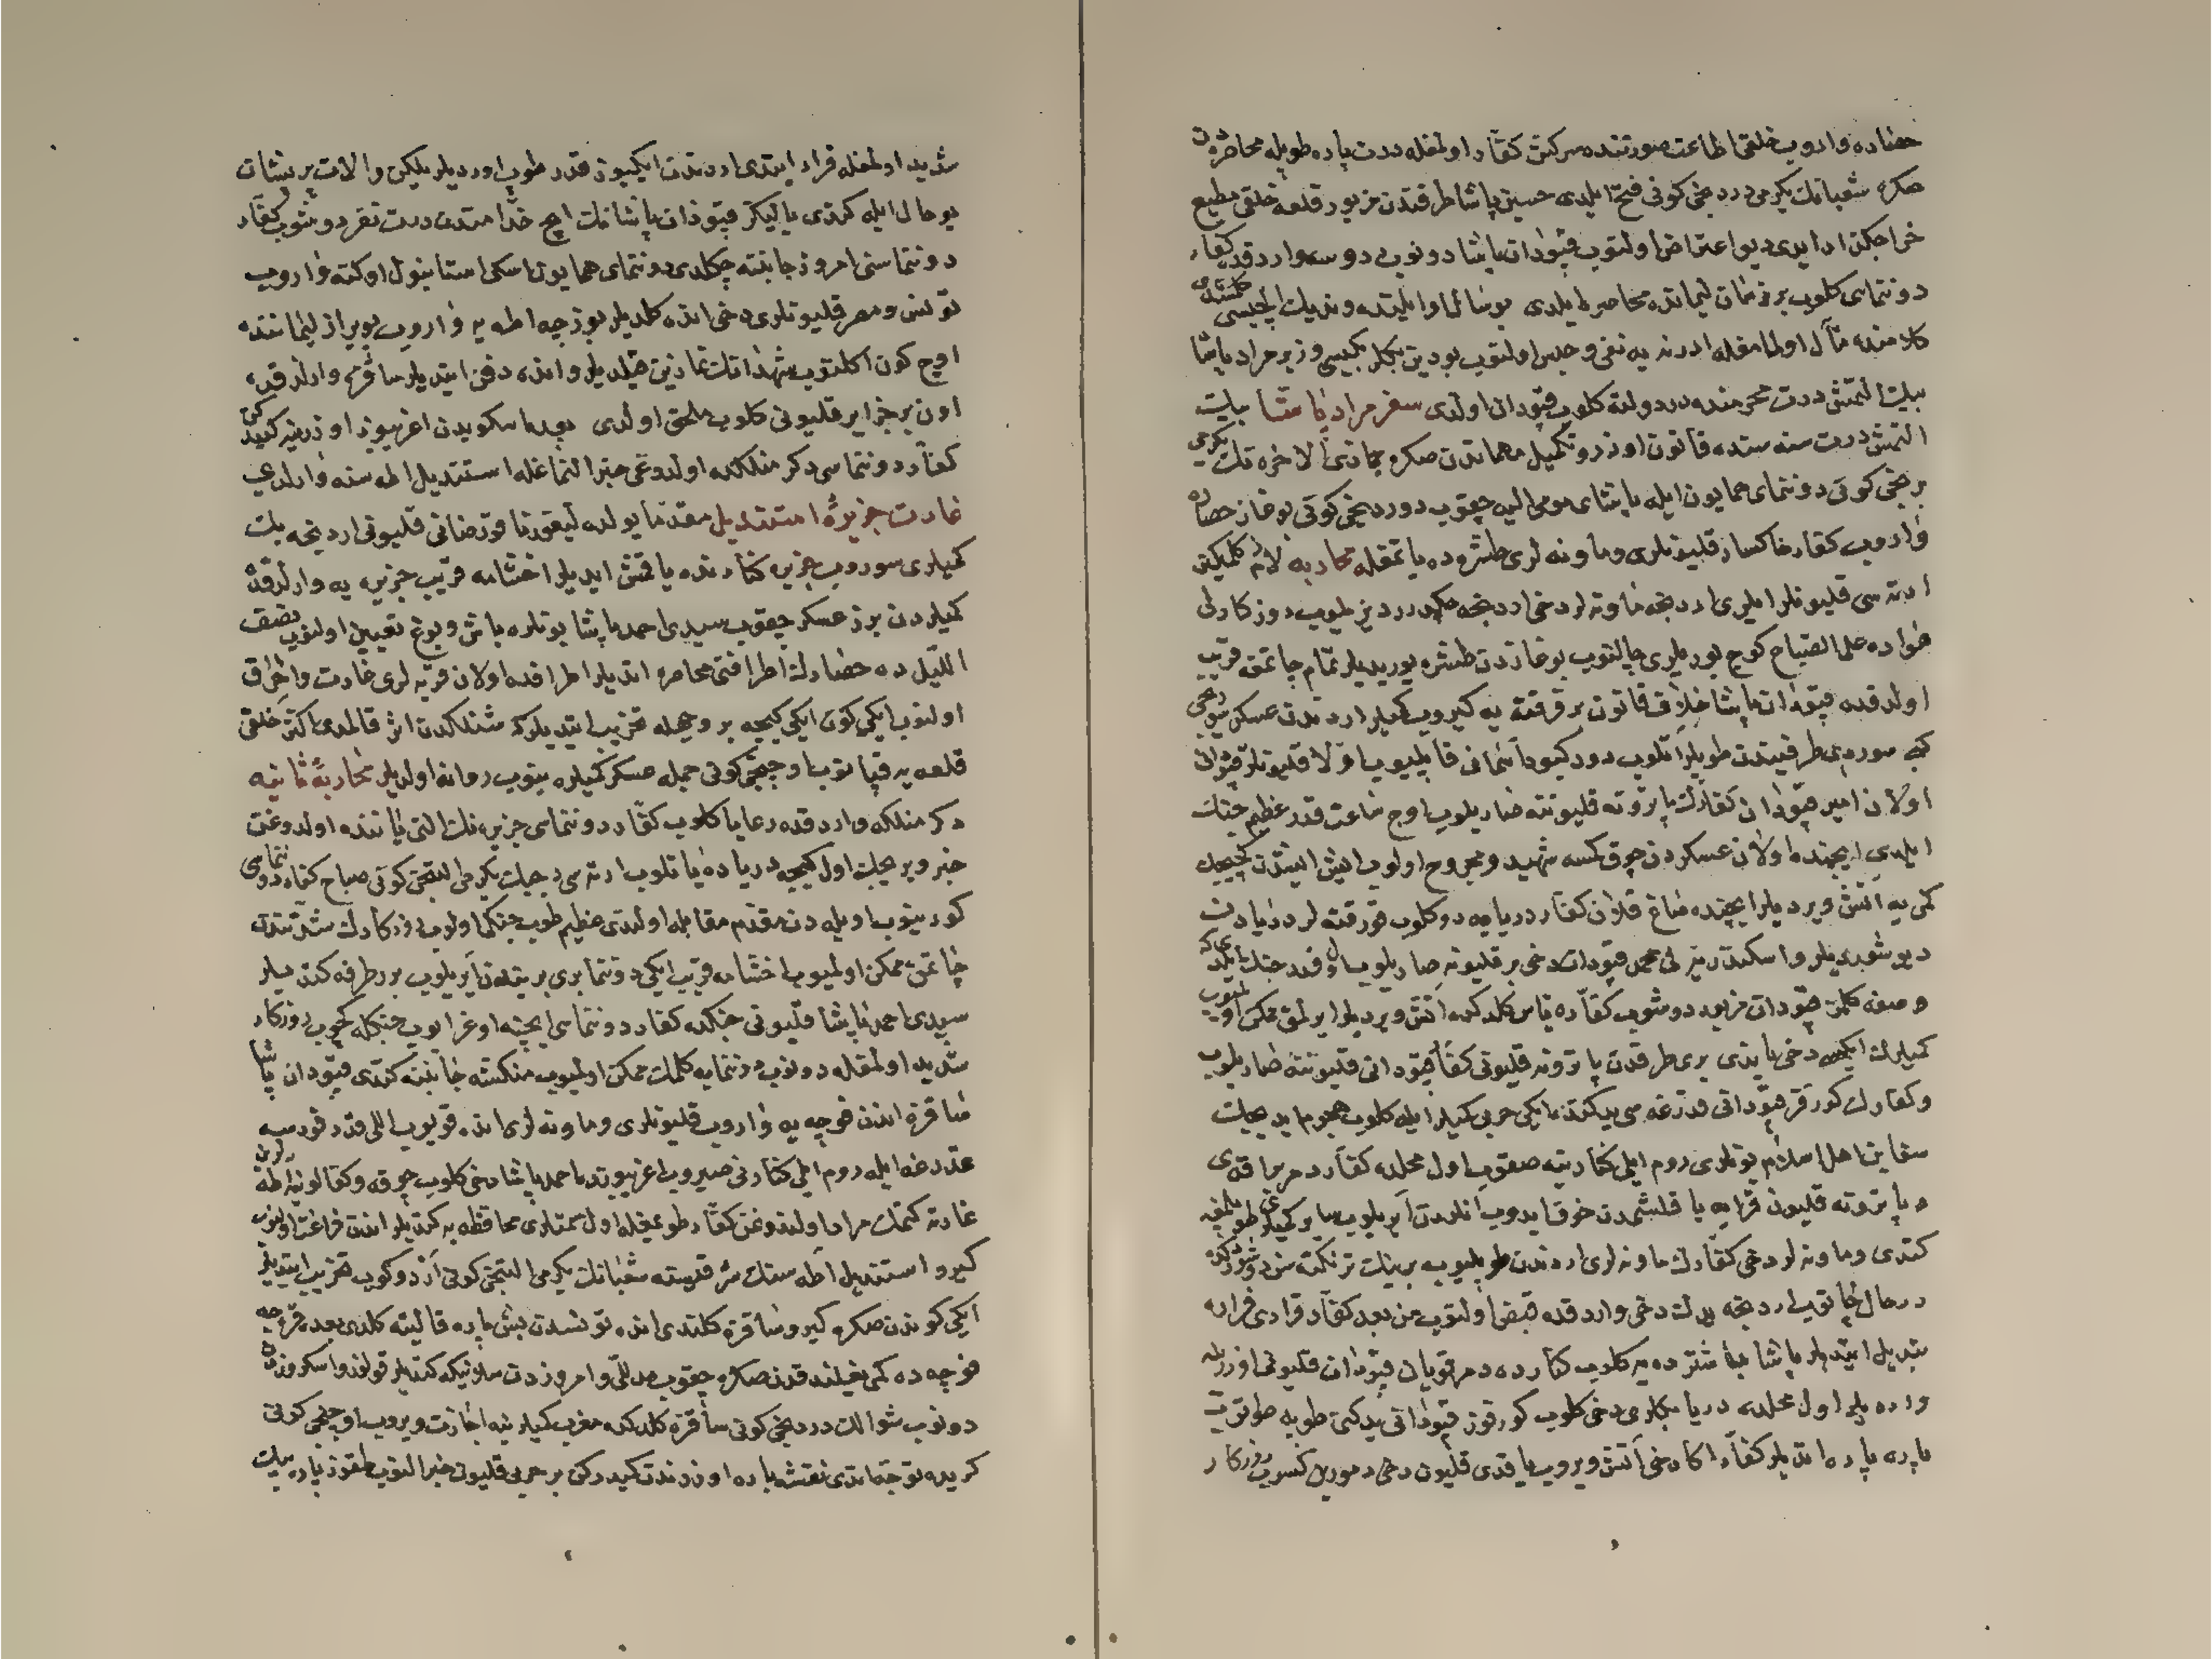 حصارده واروب خلقی اطاعت صورتنده سرکش کفار اولمغله درت پاره طوپله محاصره دن
صکره شعبانك یکرمی دردنجی کونی فتح ایلدی حسین پاشا طرفندن مزبور قلعه خلقی مطیع
خراجکذار ایدی دیو اعتراض اولنوب قپودان پاشا دونوب دوسه وارد قده کفار
دونتماسی کلوب بر زمان لیمانده محاصره ایلدی بوسال اوائلنده وندیك ایلچیسی
کلامنه مآل اولمامغله ادرنه یه نفی و حبس اولنوب بودین بکلربکیسی وزیر مراد پاشا
بیك التمش درت محرمنده در دولته کلوب قپودان اولدی سفر مراد پاشا بیك
التمش درت سنه سنده قانون اوزره تکمیل مهماتدن صکره جماذی الاخره نك یکرمی
برنجی کونی دونتمای همایون ایله پاشای مومی الیه چقوب دوردنجی کونی بوغاز حصارینه
واروب کفار خاکسار قلیونلری و ماونه لری طشره ده یاتمقله محاربه لازم کلمکین
ارته سی قلیونلر ایلری اردنجه ماونه لر دخی اردنجه چکدرر دیزیلوب روزکارلی
هواده علی الصباح کوچ بوریلری چالنوب بوغازدن طشره یوریدیلر تمام چاتمق قریب
اولدقده قپودان پاشا خلاف قانون بر فرقته یه کیروب کمیلر اردندن عسکر سوردی
کبی سوردی طرفیندن طوپلر اتلوب دود کبود آسمانی قاپلیوب اولا قلیونلر قپودانی
اولان امیر قپودان کفارك پاترونه قلیوننه صاریلوب اوچ ساعت قدر عظیم جنك
ایلدی ایچنده اولان عسکردن چوق کسه شهید و مجروح اولوب ایش ایشدن کچیجك
کمی یه آتش ویردیلر ایچنده صاغ قلان کفار دریایه دوکلوب فرقته لر دریادن
دیوشوردیلر و اسکندریه لی محمد قپودان دخی بر قلیونه صاریلوب اول قدر جنك ایلدی که
وصفه کلمز قپودان مزبور دوشوب کفاره یاس کلدکده آتش ویردیلر ایرلمق ممکن اولمیوب
کمیلرك ایکیسی دخی یاندی بری طرفدن پاترونه قلیونی کفار قپودانی قلیوننه صاریلوب
وکفارك کورفز قپودانی قدرغه سی یدکنده ایکی حربی کمیلر ایله کلوب هجوم ایدیجك
سفاین اهل اسلام بونلری روم ایلی کنارینه صقوب اول محلده کفار دمر براقدی
و پاترونه قلیون قرایه یاقلشمدن خوف ایدوب انلردن آیریلوب سایر کمیلر طوپلیغه
کتدی و ماونه لر دخی کفارك ماونه لری اردندن طوپلیوب برینك ترنکته سن دوشوردکده
درحال چاتوب اردنجه یدك دخی واردقده قبض اولنوب من بعد کفار قراری فراره
تبدیل ایتدیلر پاشا باشترده یه کلوب کنارده دمر قویان قپودان قلیونی اوزرینه
واردیلر اول محلده دریا بکلری دخی کلوب کورفوز قپودانی یدکن طوپه طوتوب
پاره پاره ایتدیلر کفار اکا دخی آتش ویروب یاقدی قلیون دخی دمورین کسوب روزکار
شدید اولمغله فرار ایتدی اردندن ایکیوز قدر طوپ اوردیلر یلکن والات پریشان
بو حال ایله کتدی یالیکز قپودان پاشانك اچ خدامندن درت نفر دوشوب کفار
دونتماسی امروز جانبنه چکلدی دونتمای همایون اسکی استانبول اوکنه واروب
تونس و مصر قلیونلری دخی انده کلدیلر بوزجه اطه یه واروب پویراز لیماننده
اوچ کون اکلنوب شهدانك نمازین قیلدیلر و انده دفن ایتدیلر ساقزه وارلدقده
اون بر جزایر قلیونی کلوب ملحق اولدی بعده اسکویدن اغریبوز اوزرینه کیدرکن
کفار دونتماسی دکرمنلکده اولدوغی خبر النماغله استندیل اطه سنه وارلدی
غارت جزیرهٔ استندیل مقدما یولده لیقورنا فورضانی قلیونی اردنجه بك
کمیلری سوروب جزیره کنارنده یاقمش ایدیلر اخشامه قریب جزیره یه وارلدقده
کمیلردن برز عسکر چقوب سیدی احمد پاشا بونلره باش و بوغ تعیین اولنوب نصف
اللیل ده حصارك اطرافنی محاصره ایتدیلر اطرافده اولان قریه لری غارت و احراق
اولنوب ایکی کون ایکی کیجه بر وجهله تخریب ایتدیلر که شنلکدن اثر قالمدی اکثر خلقی
قلعه یه قپانوب اوچنجی کونی جمله عسکر کمیلره بینوب روانه اولدیلر محاربهٔ ثانیه
دکرمنلکه واردقده رعایا کلوب کفار دونتماسی جزیره نك التی یاننده اولدوغن
خبر ویریجك اول کیجه دریاده یاتلوب ارته سی رجبك یکرمی التنجی کونی صباح کفار دونتماسی
کورینوب اویله دن مقدم مقابله اولندی عظیم طوپ جنکی اولوب روزکارك شدتندن
چاتمق ممکن اولمیوب اخشامه قریب ایکی دونتما بری برندن آیریلوب برر طرفه کتدیلر
سیدی احمد پاشا قلیونی جنکده کفار دونتماسی ایچنه اوغرایوب جنکله کچوب روزکار
شدید اولمغله دونوب دونتمایه کلمك ممکن اولمیوب منکشه جانبنه کتدی قپودان پاشا
ساقزه اندن فوچه یه واروب قلیونلری و ماونه لری انده قویوب اللی قدر فورسه
قدرغه ایله روم ایلی کنارنی صیروب اغریبوزده احمد پاشا دخی کلوب چوقه و کفالونیه اطه لرن
غارته کتمك مراد اولندوغن کفار طویمغله اول سمتلری محافظه یه کتدیلر اندن فراغت اولنوب
کیرو استندیل اطه سنك شرقیسنه شعبانك یکرمی التنجی کونی آردوکوب تخریب ایتدیلر
ایکی کوندن صکره کیرو ساقزه کلندی انده تونسدن بش پاره قالیته کلدی بعده قره جه
فوچه ده کمی یغلندقدن صکره چقوب مدللو و امروزدن سلانیکه کتدیلر قولوز و اسکروزدن
دونوب شوالك دردنجی کونی ساقزه کلدکده مغرب کمیلرینه اجازت ویروب اوچنجی کونی
کریده توجه ایتدی نقشه پاره اوزرندن کیدرکن بر حربی قلیون خبر النوب طقوز پاره بیك